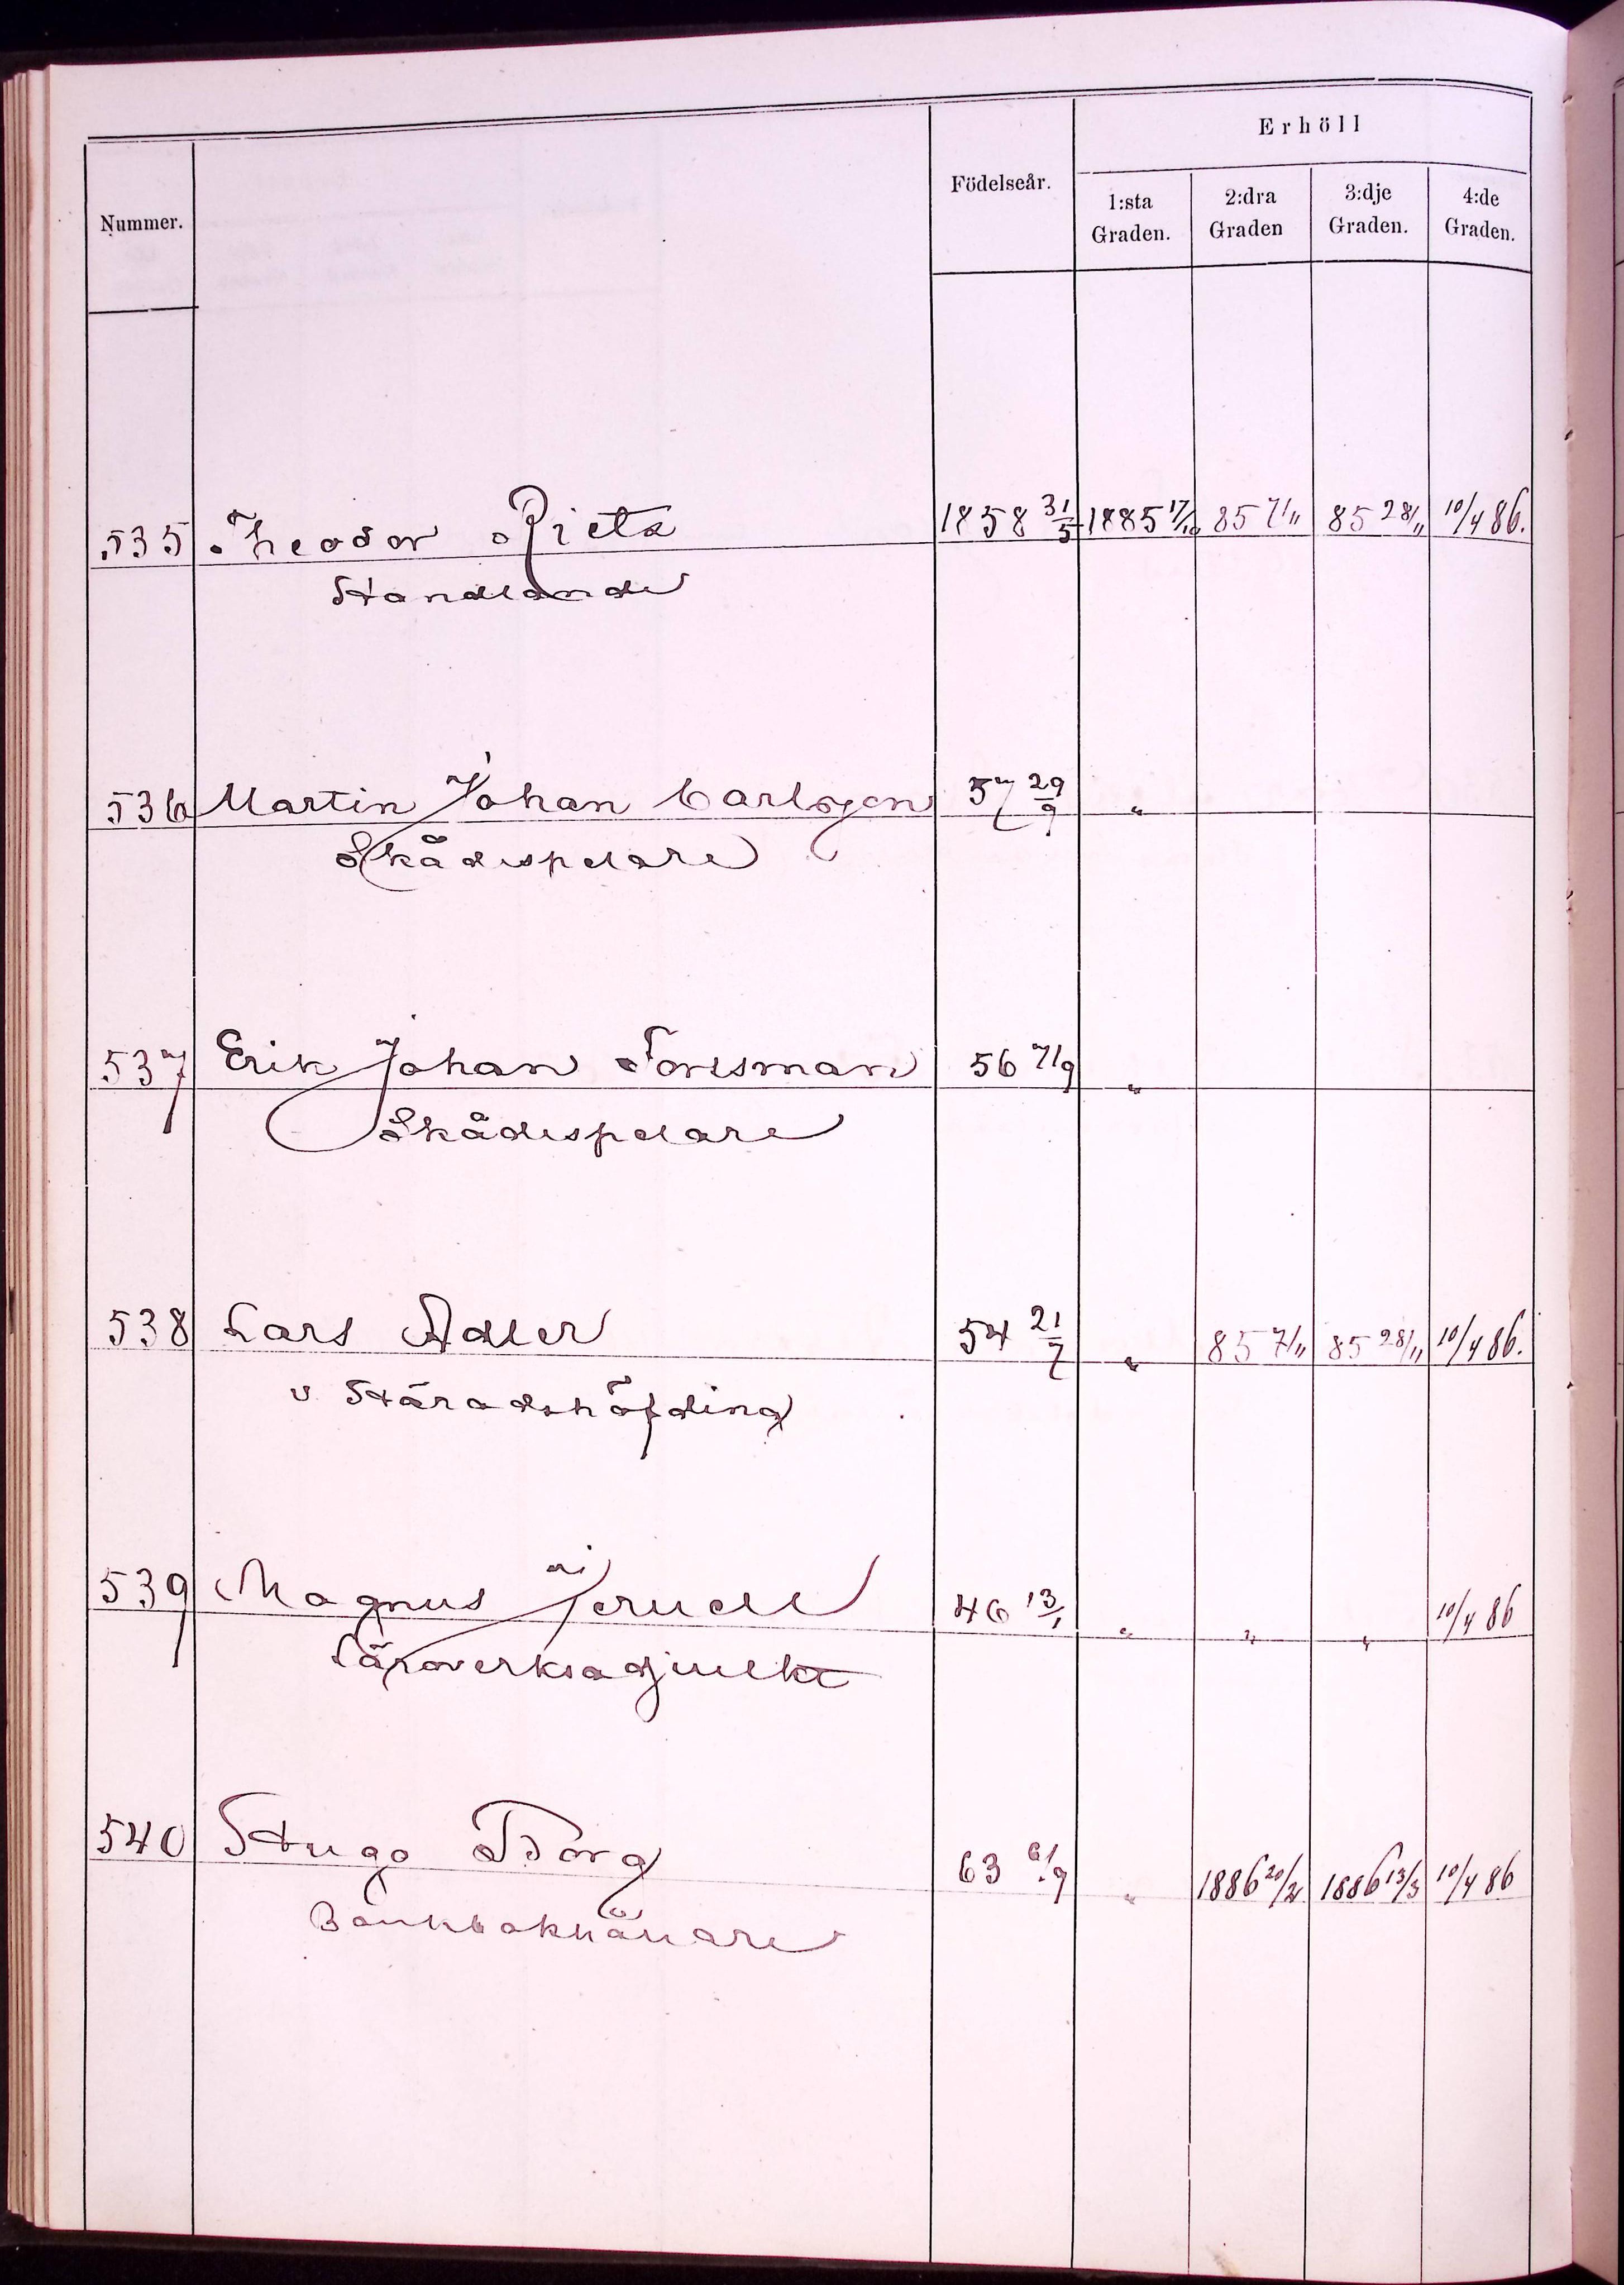 Erhöll
Nummer. Födelseår. 1:sta Graden. 2:dra Graden 3:dje Graden. 4:de Graden.
535 Theodor Rietz 1858 31/5 1885 17/10 85 7/11 85 28/11 10/4 86.
Handlande
536 Martin Johan Carlsson 57 29/9 "
Skådespelare
537 Erik Johan Forssman 56 7/9 "
Skådespelare
538 Lars Adler 54 21/7 " 85 7/11 85 28/11 10/4 86.
v. Häradshöfding
539 Magnus 46 13/1 " " " 10/4 86
Läroverksadjunkt
540 Hugo Borg 63 6/9 " 1886 20/2 1886 13/3 10/4 86
Bankbokhållare